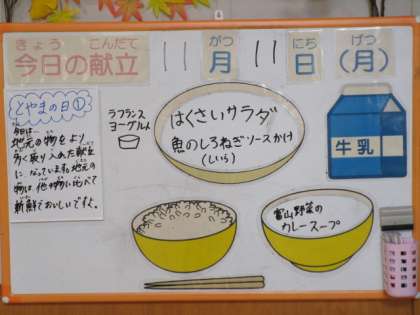 きょう こんだて
今日の献立
がつ にち げつ
11月11日(月)
とやまの日①
今日は、
地元の物をより
多く取り入れた献立
に なっています。地元の
物は 他の物に比べて
新鮮で おいしいですよ。
ラフランス
ヨーグルト
はくさいサラダ
魚のしろねぎソースかけ
(しいら)
牛乳
富山野菜の
カレースープ